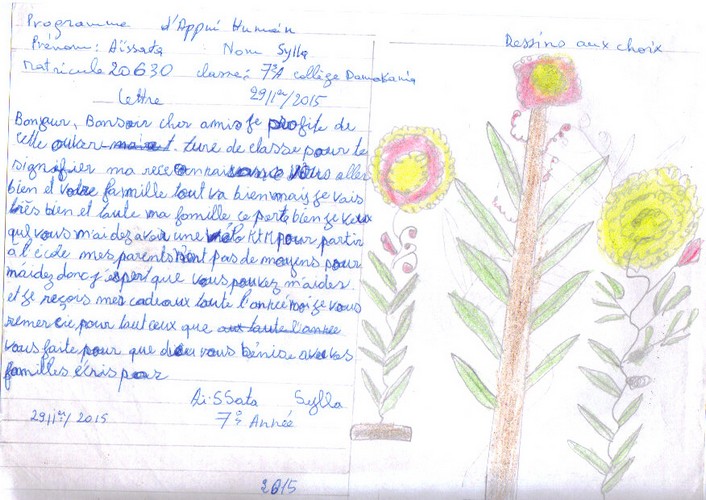 Programme d'Appui Humain
Prénom: Aïssata Nom Sylla
Matricule 20630 classe: 7èA collège Damakania
Lettre 29/1er/2015
Bonjour, Bonsoir cher amis je profite de
cette ouver ture de classe pour te
signifier ma reconnaissance Vous allez
bien et votre famille tout va bien mais je vais
très bien et toute ma famille ce porte bien je veux
que vous m'aidez avoir une moto KTM pour partir
a l'école mes parents n'ont pas de moyens pour
m'aidez donc j'esper que vous pouvez m'aides
et je reçois mes cadeaux toute l'année moi je vous
remercie pour tout ceux que aux toute l'année
vous faite pour que dieu vous bénise avec vos
familles écris pour
Aissata Sylla
29/1er/2015 7è Année
2015
Dessins aux choix